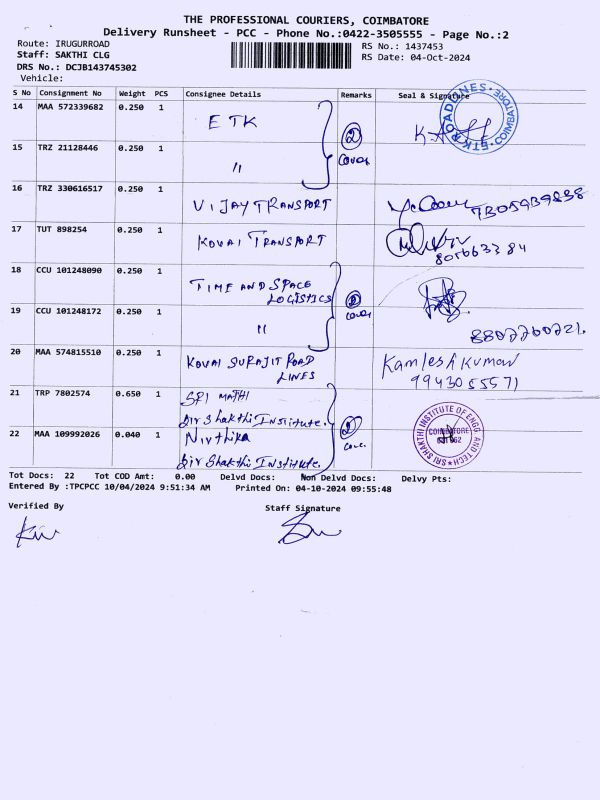 THE PROFESSIONAL COURIERS, COIMBATORE
Delivery Runsheet - PCC - Phone No.:0422-3505555 - Page No.:2
Route: IRUGURROAD
RS No.: 1437453
Staff: SAKTHI CLG
RS Date: 04-Oct-2024
DRS No.: DCJB143745302
Vehicle:
S No Consignment No Weight PCS Consignee Details Remarks Seal & Signature
14 MAA 572339682 0.250 1 ETK
15 TRZ 21128446 0.250 1 "
2 cover
ETK ROADLINES COIMBATORE
16 TRZ 330616517 0.250 1 VIJAY TRANSPORT 7305939838
17 TUT 898254 0.250 1 KOVAI TRANSPORT
18 CCU 101248090 0.250 1 TIME AND SPACE
LOGISTICS
2 cover
19 CCU 101248172 0.250 1 "
20 MAA 574815510 0.250 1 KOVAI SURAJIT ROAD
LINES
Kamlesh Kumar
9943055571
21 TRP 7802574 0.650 1 SRI MATHI
Sir Shakthi Institute.
22 MAA 109992026 0.040 1 Nivthika
Sir Shakthi Institute.
2
SRI SHAKTHI INSTITUTE OF ENGG AND TECH
COIMBATORE
Tot Docs: 22 Tot COD Amt: 0.00 Delvd Docs: Non Delvd Docs: Delvy Pts:
Entered By :TPCPCC 10/04/2024 9:51:34 AM Printed On: 04-10-2024 09:55:48
Verified By
Staff Signature